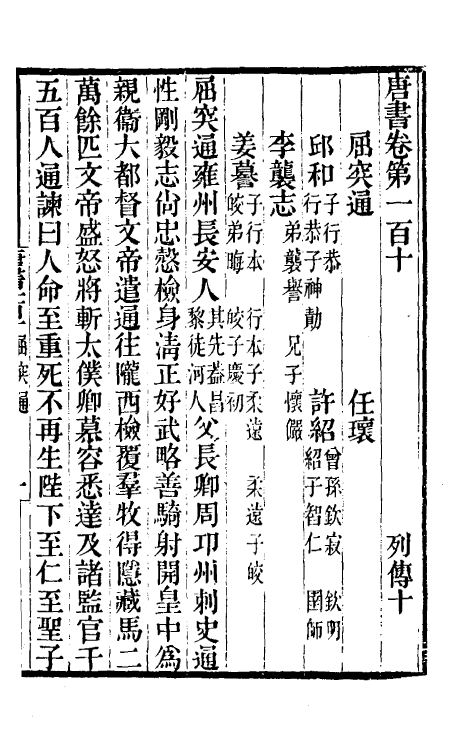 唐書卷第一百十　列傳十
屈突通　任瓌
邱和子行恭 行恭子神勣　許紹曾孫欽寂 欽明 紹子智仁 圉師
李襲志弟襲譽 兄子懷儼
姜謩子行本 行本子柔遠 柔遠子皎 皎弟晦 皎子慶初
屈突通雍州長安人其先蓋昌黎徒河人父長卿周邛州刺史通
性剛毅志尚忠慤檢身淸正好武略善騎射開皇中爲
親衞大都督文帝遣通往隴西檢覆羣牧得隱藏馬二
萬餘匹文帝盛怒將斬太僕卿慕容悉達及諸監官千
五百人通諫曰人命至重死不再生陛下至仁至聖子
屈突通 一